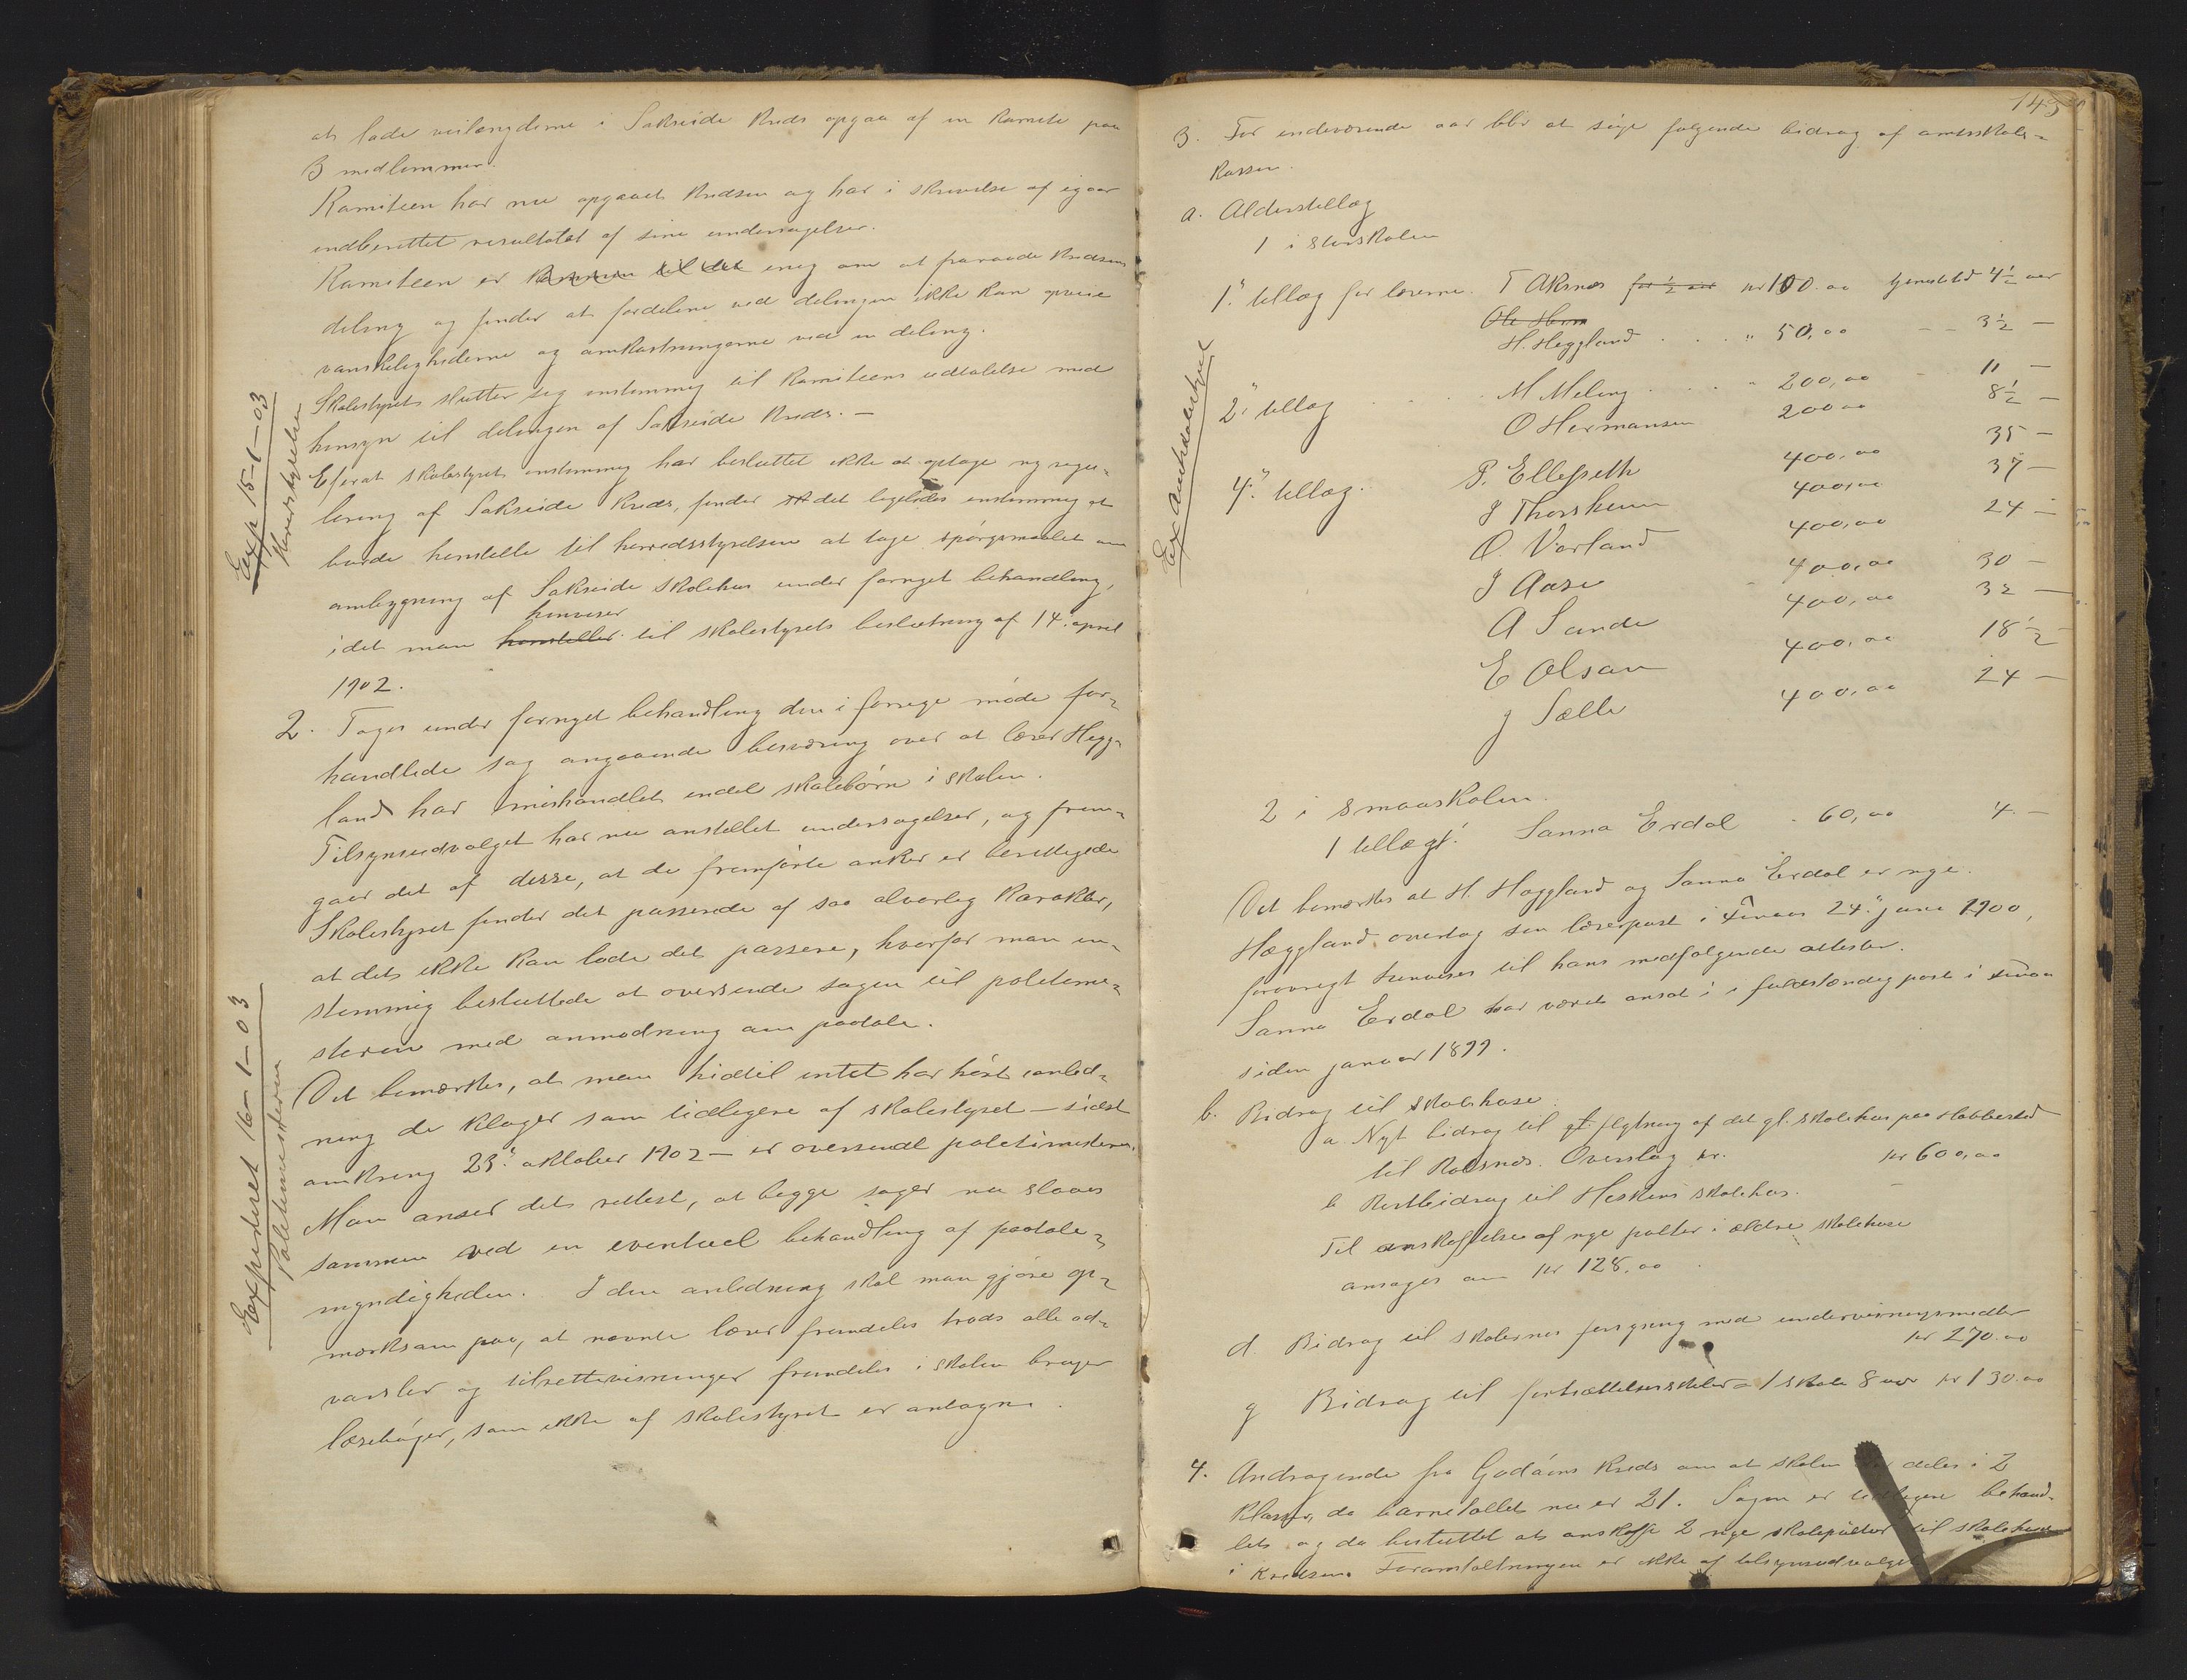 at lade veilængderne i Sakseide kreds opgaa af en komite paa
3 medlemmer.
Komiteen har nu opgaaet kredsen og har i skrivelse af igaar
indberettet resultatet af sine undersøgelser.
Komiteen er kommen til det enig om at fraraade kredsens
deling og finder at fordelene ved delingen ikke kan opveie
vanskelighederne og omkostningerne ved en deling.
Skolestyret slutter sig enstemmig til komiteens udtalelse med
hensyn til delingen af Sakseide kreds. —
Exp 15-1-03
Herredsstyrelsen
Efterat skolestyret enstemmig har besluttet ikke at optage ny regu-
lering af Sakseide kreds, finder det ligeledes enstemmig at
burde henstille til herredsstyrelsen at tage spørgsmaalet om
ombygning af Sakseide skolehus under fornyet behandling,
idet man henstiller henviser til skolestyrets beslutning af 14. april
1902.
2. Toges under fornyet behandling den i forrige møde for-
handlede sag angaaende besværing over at lærer Hegg-
land har mishandlet endel skolebørn i skolen.
Tilsynsudvalget har nu anstillet undersøgelser, og frem-
gaar det af disse, at de fremførte anker er berettigede
Skolestyret finder det passerede af saa alvorlig karakter,
at det ikke kan lade det passere, hvorfor man en-
stemmig besluttede at oversende sagen til politime-
steren med anmodning om paatale.
Expederet 16-1-03
Politimesteren
Det bemærkes, at man hidtil intet har hørt i anled-
ning de klager som tidligere af skolestyret — sidst
omkring 23de oktober 1902 — er oversendt politimesteren.
Man anser det rettest, at begge sager nu slaaes
sammen ved en eventuel behandling af paatale-
myndigheden. I den anledning skal man gjøre op-
mærksom paa, at nævnte lærer fremdeles trods alle ad-
varsler og tilrettevisninger fremdeles i skolen bruger
læsebøger, som ikke af skolestyret er antagne.
143
3. For indeværende aar blir at søge følgende bidrag af amtsskole-
kassen.
a. Alderstillæg
1 i storskolen
Exp Amtsskolestyret
1.ste tillæg for lærerne. T Aksnes for ½ aar kr 100.00 tjenestetid 4½ aar
Ole Herm
H. Heggland . . . " 50,00 - - 3½ —
2det tillæg . . . M Meling . . . " 200,00 - 11 —
O Hermansen 200 00 8½ —
4de tillæg. P. Ellefseth 400,00 35 —
J Thorsheim 400,00 37 —
O. Vorland 400,00 24 —
J Aase 400,00 30 —
A Sande 400,00 32 —
E Olsen 400,00 18½ —
J Sælle 400,00 24 —
2 i smaaskolen.
1 tillæg. Sanna Erdal . 60,00 4 —
Det bemærkes at H. Heggland og Sanna Erdal er nye.
Hæggland overtog sin lærerpost i Finaas 24de juni 1900,
forøvrigt henvises til hans medfølgende attester.
Sanna Erdal har været ansat i fuldstændig post i Finaas
siden januar 1899.
b. Bidrag til skolehuse.
a. Nyt bidrag til flytning af det gl. skolehus paa Hobbestad
til Robsnes. Overslag kr. kr 600,00
b Restbidrag til Heskens skolehus. —
Til anskaffelse af nye pulter i ældre skolehuse
ansøges om kr 128,00
d Bidrag til skolernes forsyning med undervisningsmidler
kr 270.00
g Bidrag til fortsættelsesskoler = 1 skole 8 uger kr 130.00
4. Andragende fra Godøens kreds om at skolen deles i 2
klasser, da barnetallet nu er 21. Sagen er tidligere behand-
let og da besluttet at anskaffe 2 nye skolepulter til skolehuset
i kredsen. Foranstaltningen er ikke af tilsynsudvalget